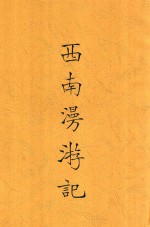 西南漫游記